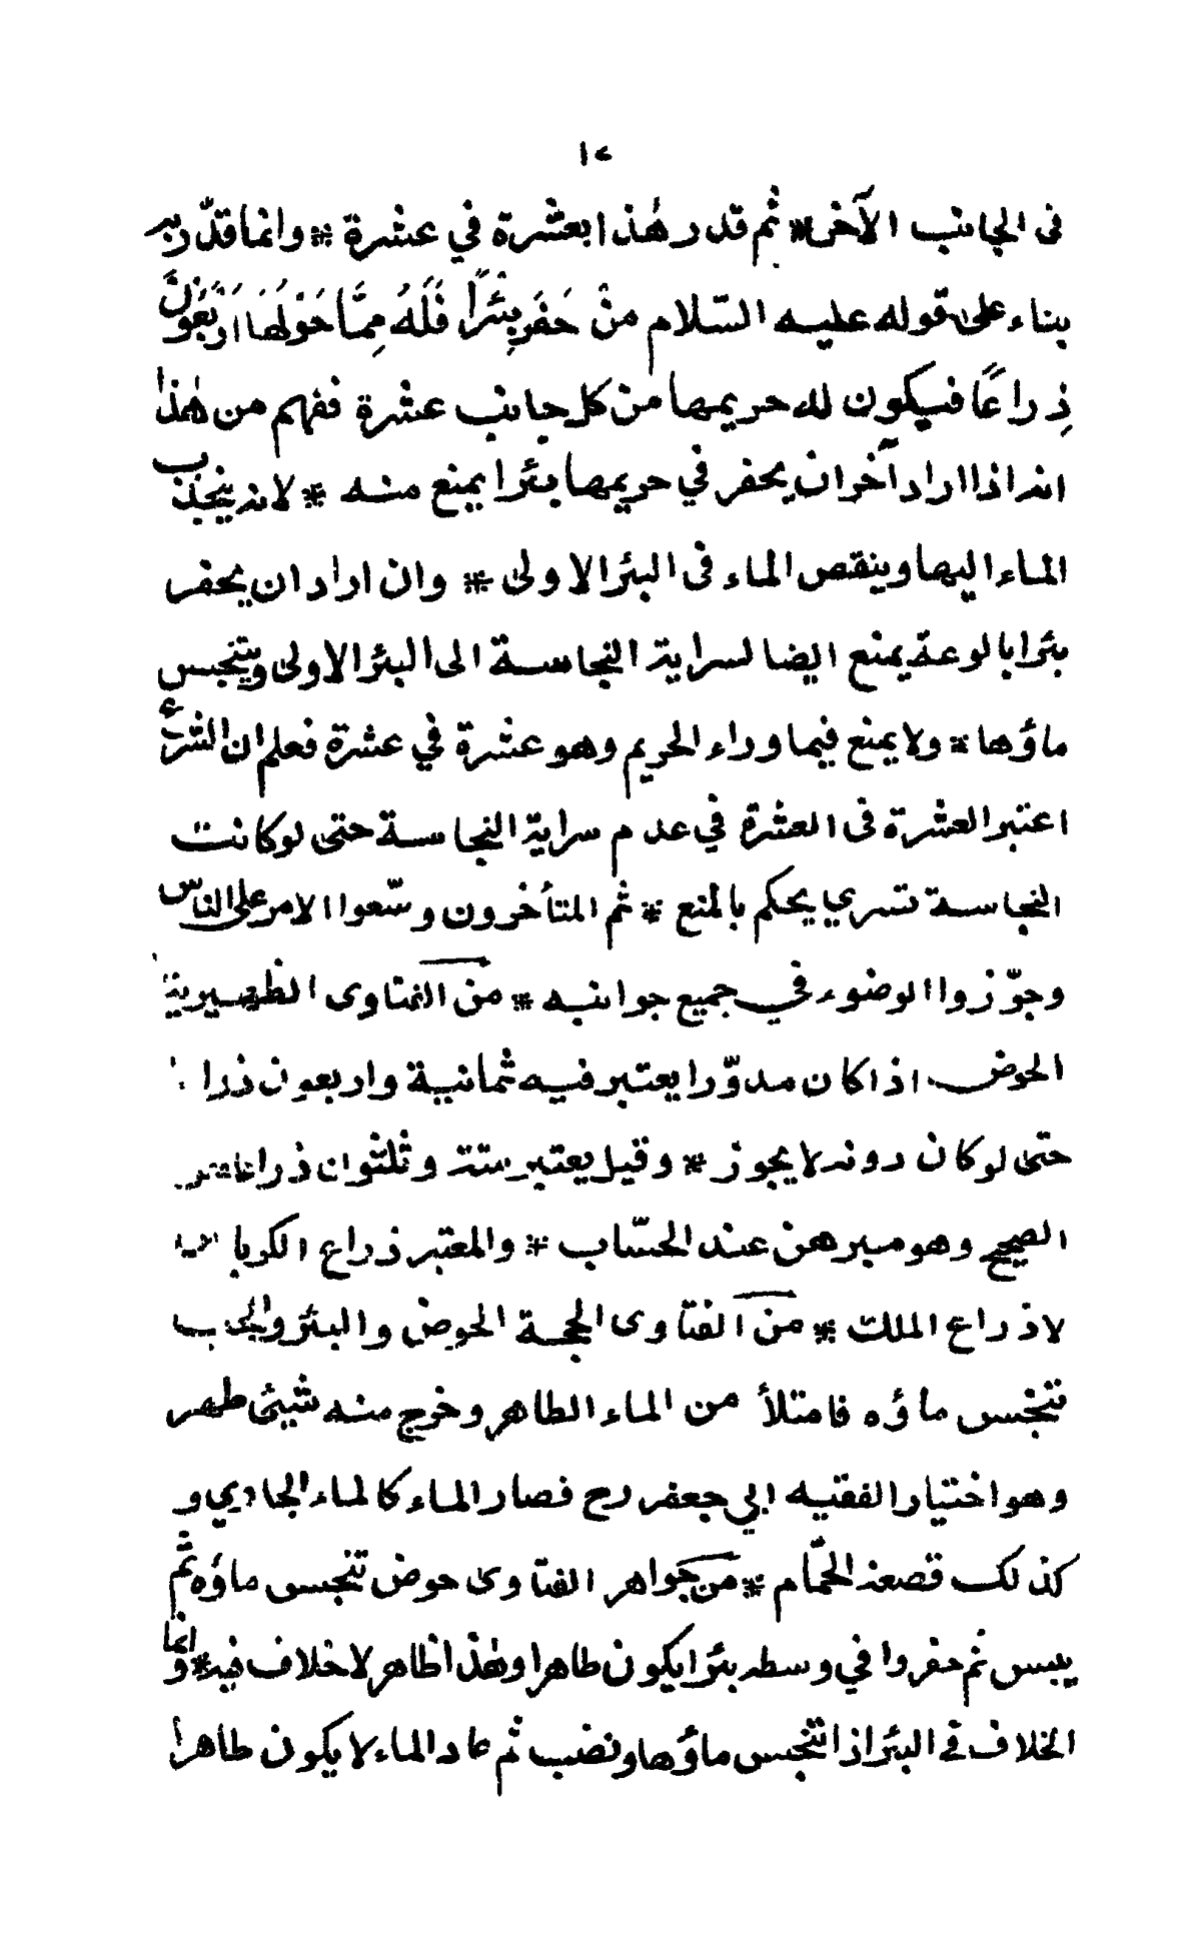 في الجانب الآخر * ثم قدر هذا بعشرة في عشرة * وانما قدّر به
بناء على قوله عليه السّلام مَنْ حَفَرَ بِئْرًا فَلَهُ مِمَّا حَوْلَهَا اَرْبَعُوْنَ
ذِراعًا فيكون له حريمها من كل جانب عشرة ففهم من هذا
انه اذا اراد آخر ان يحفر في حريمها بئرا يمنع منه * لانه ينجذب
الماء اليها وينقص الماء في البئر الاولى * وان اراد ان يحفر
بئرا بالوعة يمنع ايضا لسراية النجاسة الى البئر الاولى ويتنجس
ماؤها * ولا يمنع فيما وراء الحريم وهو عشرة في عشرة فعلم ان الشرع
اعتبر العشرة في العشرة في عدم سراية النجاسة حتى لو كانت
النجاسة تسري يحكم بالمنع * ثم المتأخرون وسّعوا الامر على الناس
وجوّزوا الوضوء في جميع جوانبه * من الفتاوى الظهيرية
الحوض اذا كان مدوّرا يعتبر فيه ثمانية واربعون ذرا
حتى لو كان دونه لا يجوز * وقيل يعتبر ستة وثلثون ذراعا
الصحيح وهو مبرهن عند الحسّاب * والمعتبر ذراع الكرباس
لا ذراع الملك * من الفتاوى الحجة الحوض والبئر والجب
تنجس ماؤه فامتلأ من الماء الطاهر وخرج منه شيئ طهر
وهو اختيار الفقيه ابي جعفر رح فصار الماء كالماء الجاري و
كذلك قصعة الحمّام * من جواهر الفتاوى حوض تنجس ماؤه ثم
يبس ثم حفروا في وسطه بئرا يكون طاهرا وهذا ظاهر لا خلاف فيه * وانما
الخلاف في البئر اذا تنجس ماؤها ونضب ثم عاد الماء لا يكون طاهرا